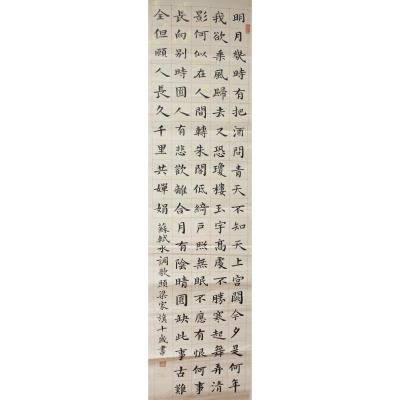 明月幾時有把酒問青天不知天上宮闕今夕是何年
我欲乘風歸去又恐瓊樓玉宇高處不勝寒起舞弄清
影何似在人間轉朱閣低綺戶照無眠不應有恨何事
長向別時圓人有悲歡離合月有陰晴圓缺此事古難
全但願人長久千里共嬋娟
蘇軾水調歌頭梁家十歲書